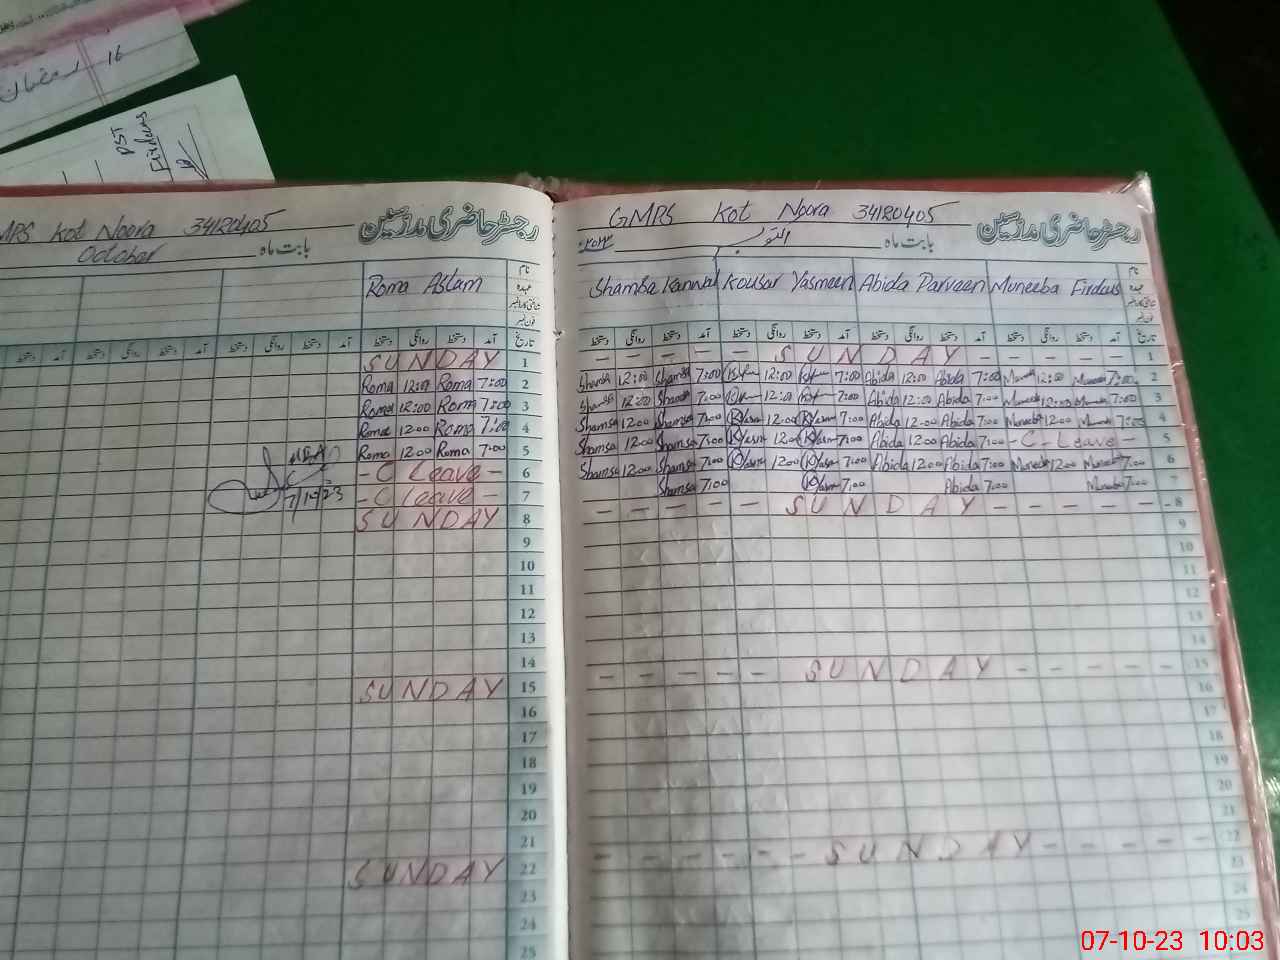 16
PST
Firdous
MPS Kot Noora 34120405
رجسٹر حاضری مدرسین
October
بابت ماہ
Roma Aslam
نام
عہدہ
دستخط روانگی دستخط آمد دستخط روانگی دستخط آمد دستخط روانگی دستخط آمد تاریخ
SUNDAY 1
Roma 12:00 Roma 7:00 2
Roma 12:00 Roma 7:00 3
Roma 12:00 Roma 7:00 4
Roma 12:00 Roma 7:00 5
- C Leave - 6
- C Leave - 7
7/10/23
SUNDAY 8
9
10
11
12
13
14
SUNDAY 15
16
17
18
19
20
21
SUNDAY 22
23
24
25
GMPS Kot Noora 34120405
رجسٹر حاضری مدرسین
بابت ماہ اکتوبر
Shamba Kanwal Kousar Yasmeen Abida Parveen Muneeba Firdous
نام
عہدہ
فون نمبر
دستخط روانگی دستخط آمد دستخط روانگی دستخط آمد دستخط روانگی دستخط آمد دستخط روانگی دستخط آمد تاریخ
- - - - - SUNDAY - - - - - 1
Shamsa 12:00 Shamsa 7:00 12:00 7:00 Abida 12:00 Abida 7:00 12:00 7:00 2
Shamsa 12:00 Shamsa 7:00 12:00 7:00 Abida 12:00 Abida 7:00 Muneeba 12:00 7:00 3
Shamsa 12:00 Shamsa 7:00 12:00 7:00 Abida 12:00 Abida 7:00 Muneeba 12:00 7:00 4
Shamsa 12:00 Shamsa 7:00 12:00 7:00 Abida 12:00 Abida 7:00 - C - Leave - 5
Shamsa 12:00 Shamsa 7:00 12:00 7:00 Abida 12:00 Abida 7:00 Muneeba 12:00 Muneeba 7:00 6
Shamsa 7:00 7:00 Abida 7:00 Muneeba 7:00 7
- - - - - SUNDAY - - - - - 8
9
10
11
12
13
14
- - - - - SUNDAY - - - - - 15
16
17
18
19
20
21
- - - - - - SUNDAY - - - - - 22
23
24
25
07-10-23 10:03